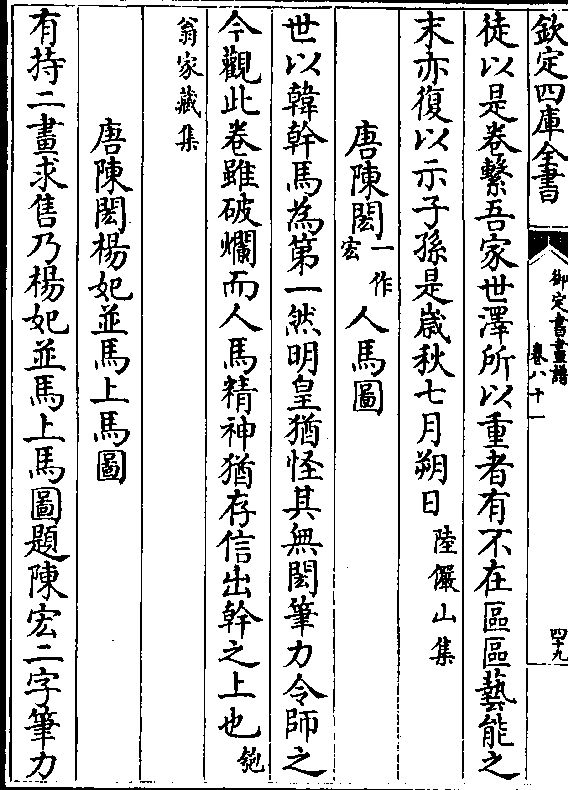 欽定四庫全書
御定書畫譜
卷八十一
四十九
徒以是卷繫吾家世澤所以重者有不在區區藝能之
末亦復以示子孫是嵗秋七月朔日陸儼山集
唐陳閎一作宏人馬圖
世以韓幹馬為第一然明皇猶怪其無閎筆力令師之
今觀此卷雖破爛而人馬精神猶存信出幹之上也匏
翁家藏集
唐陳閎楊妃並馬上馬圖
有持二畫求售乃楊妃並馬上馬圖題陳宏二字筆力